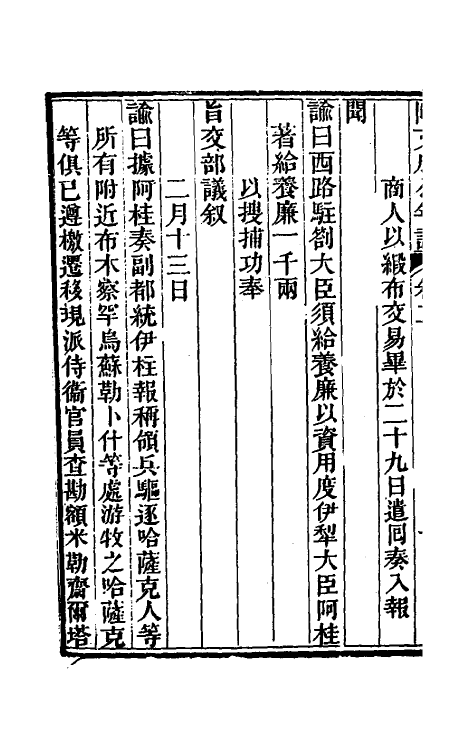 商人以緞布交易畢於二十九日遣囘奏入報
聞
諭曰西路駐劄大臣須給養廉以資用度伊犁大臣阿桂
著給養廉一千兩
以搜捕功奉
旨交部議敘
二月十三日
諭曰據阿桂奏副都統伊柱報稱領兵驅逐哈薩克人等
所有附近布木察罕烏蘇勒卜什等處游牧之哈薩克
等俱已遵檄遷移現派侍衞官員查勘額米勒齋爾塔